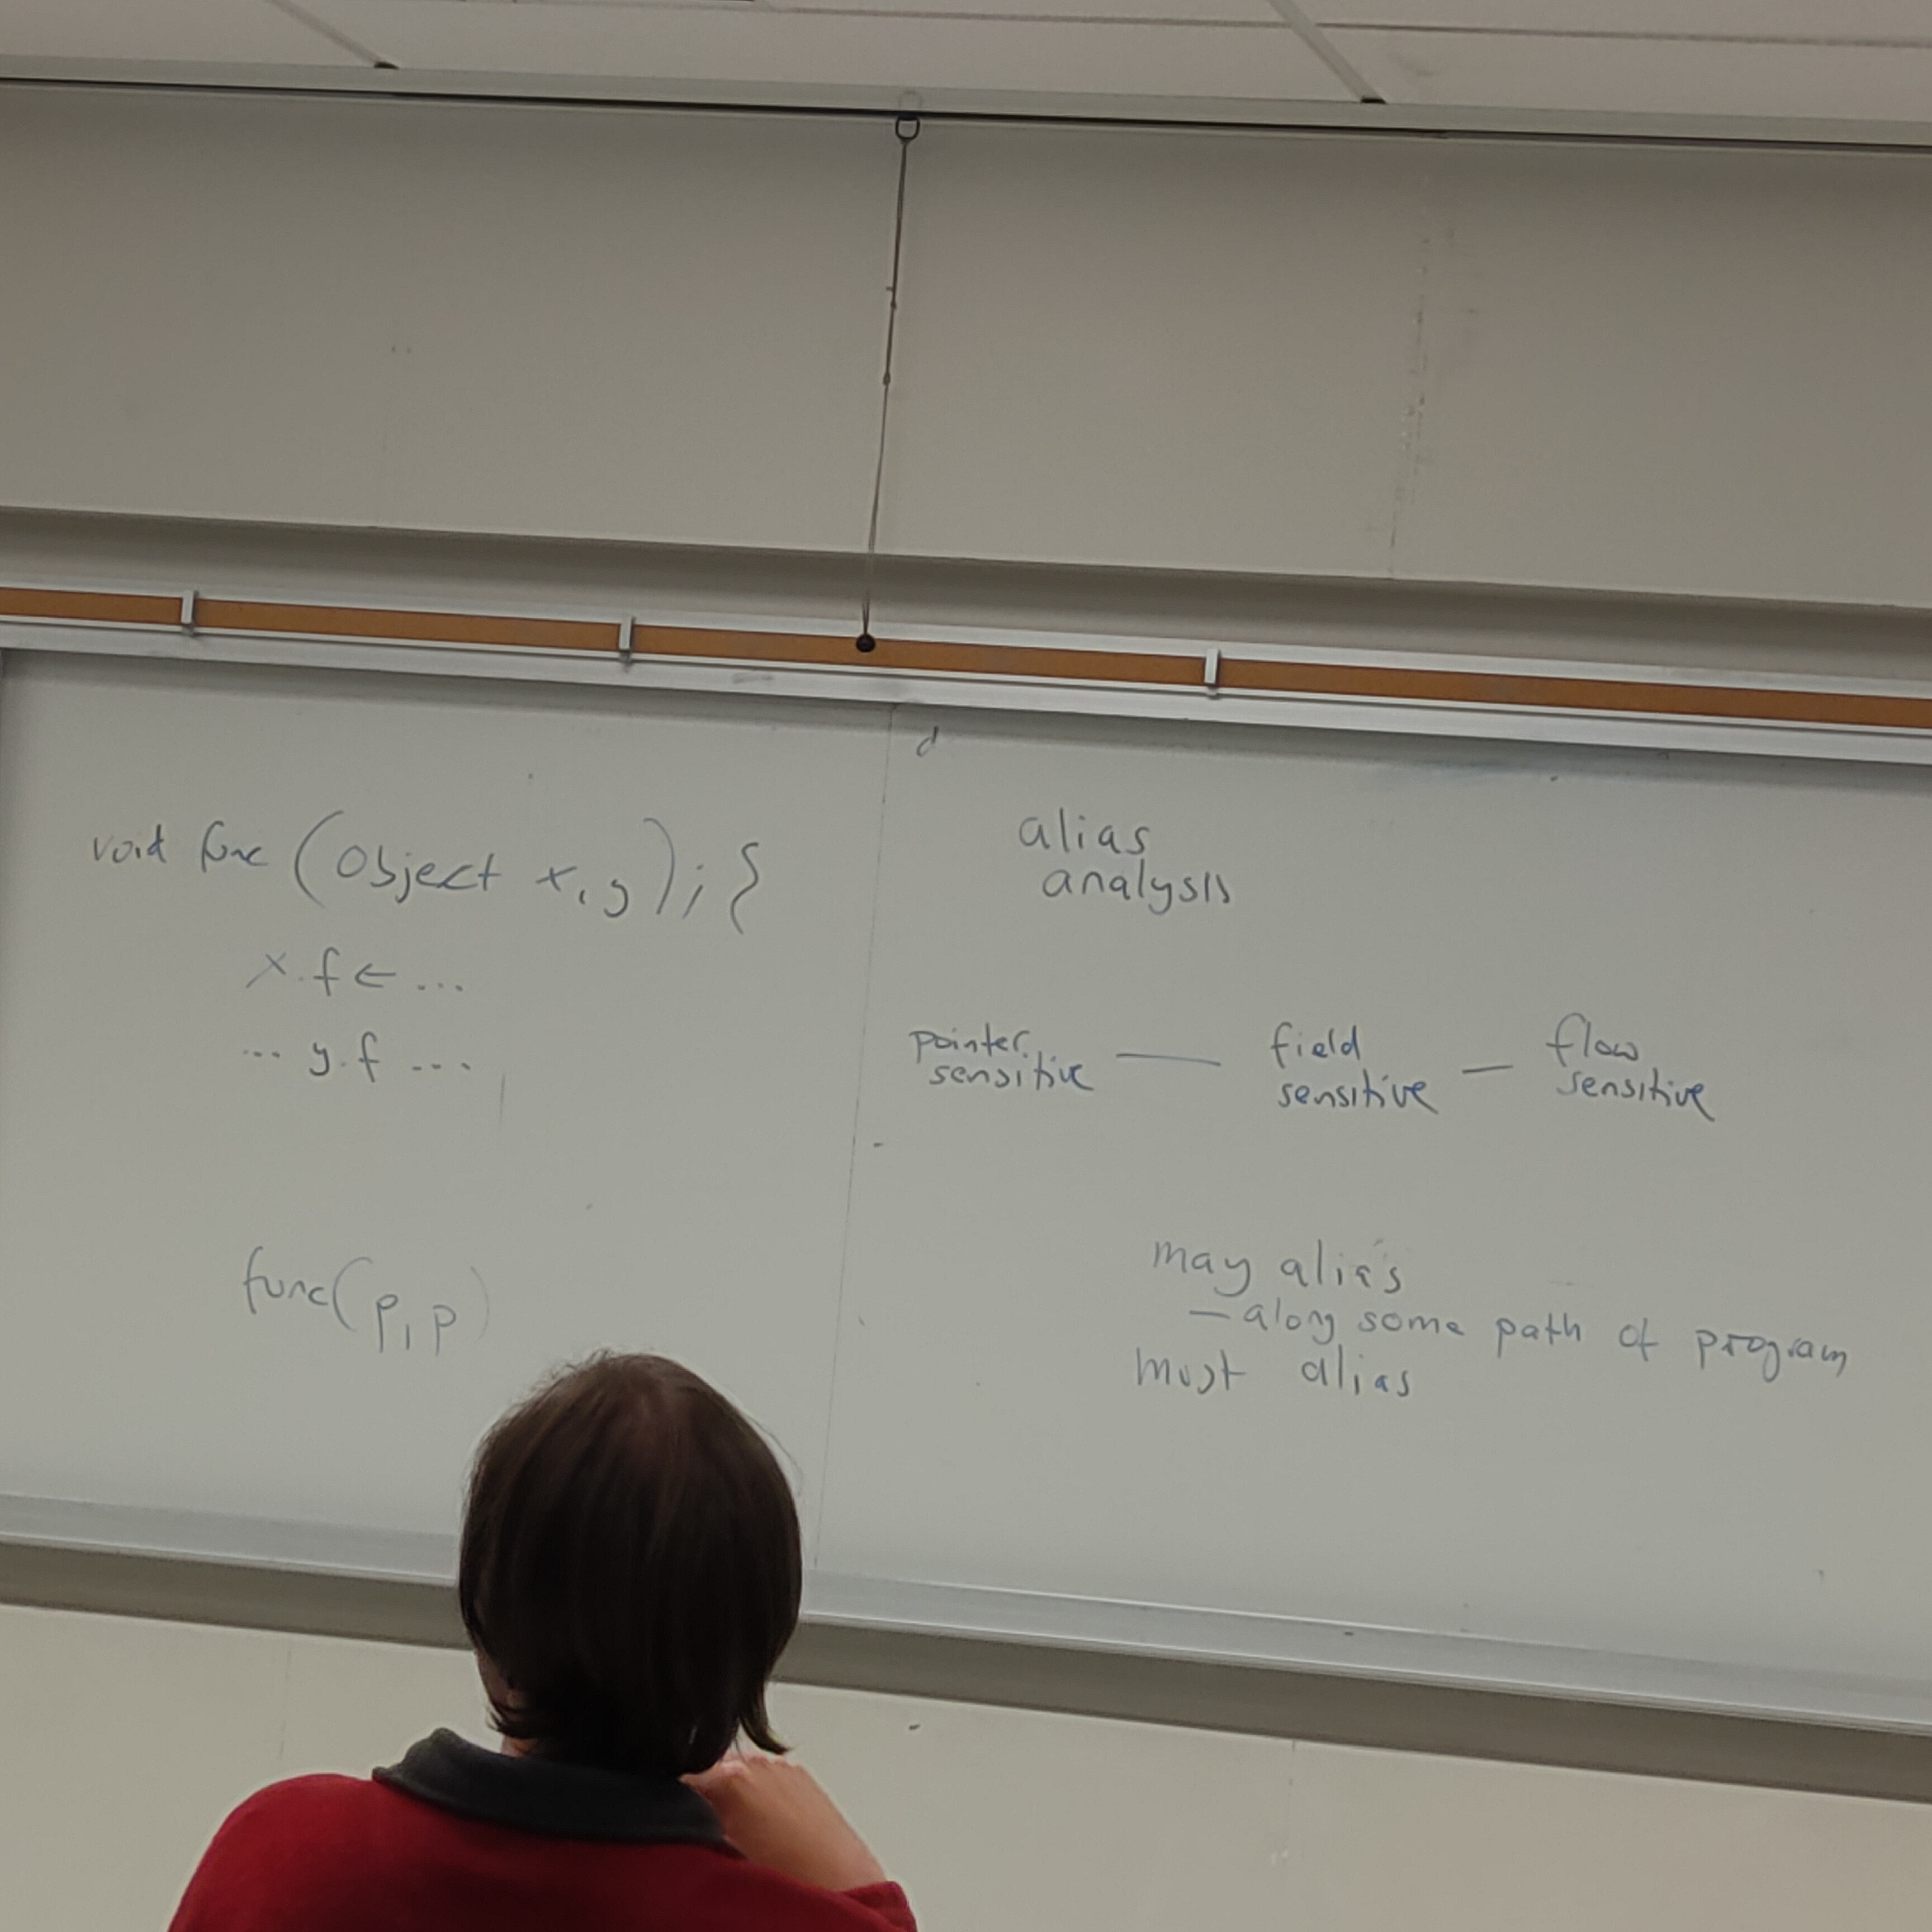 void func (Object x, y); {
x.f ← ...
... y.f ...
func(p, p)
d
alias
analysis
pointer sensitive — field sensitive — flow sensitive
may alias
— along some path of program
must alias